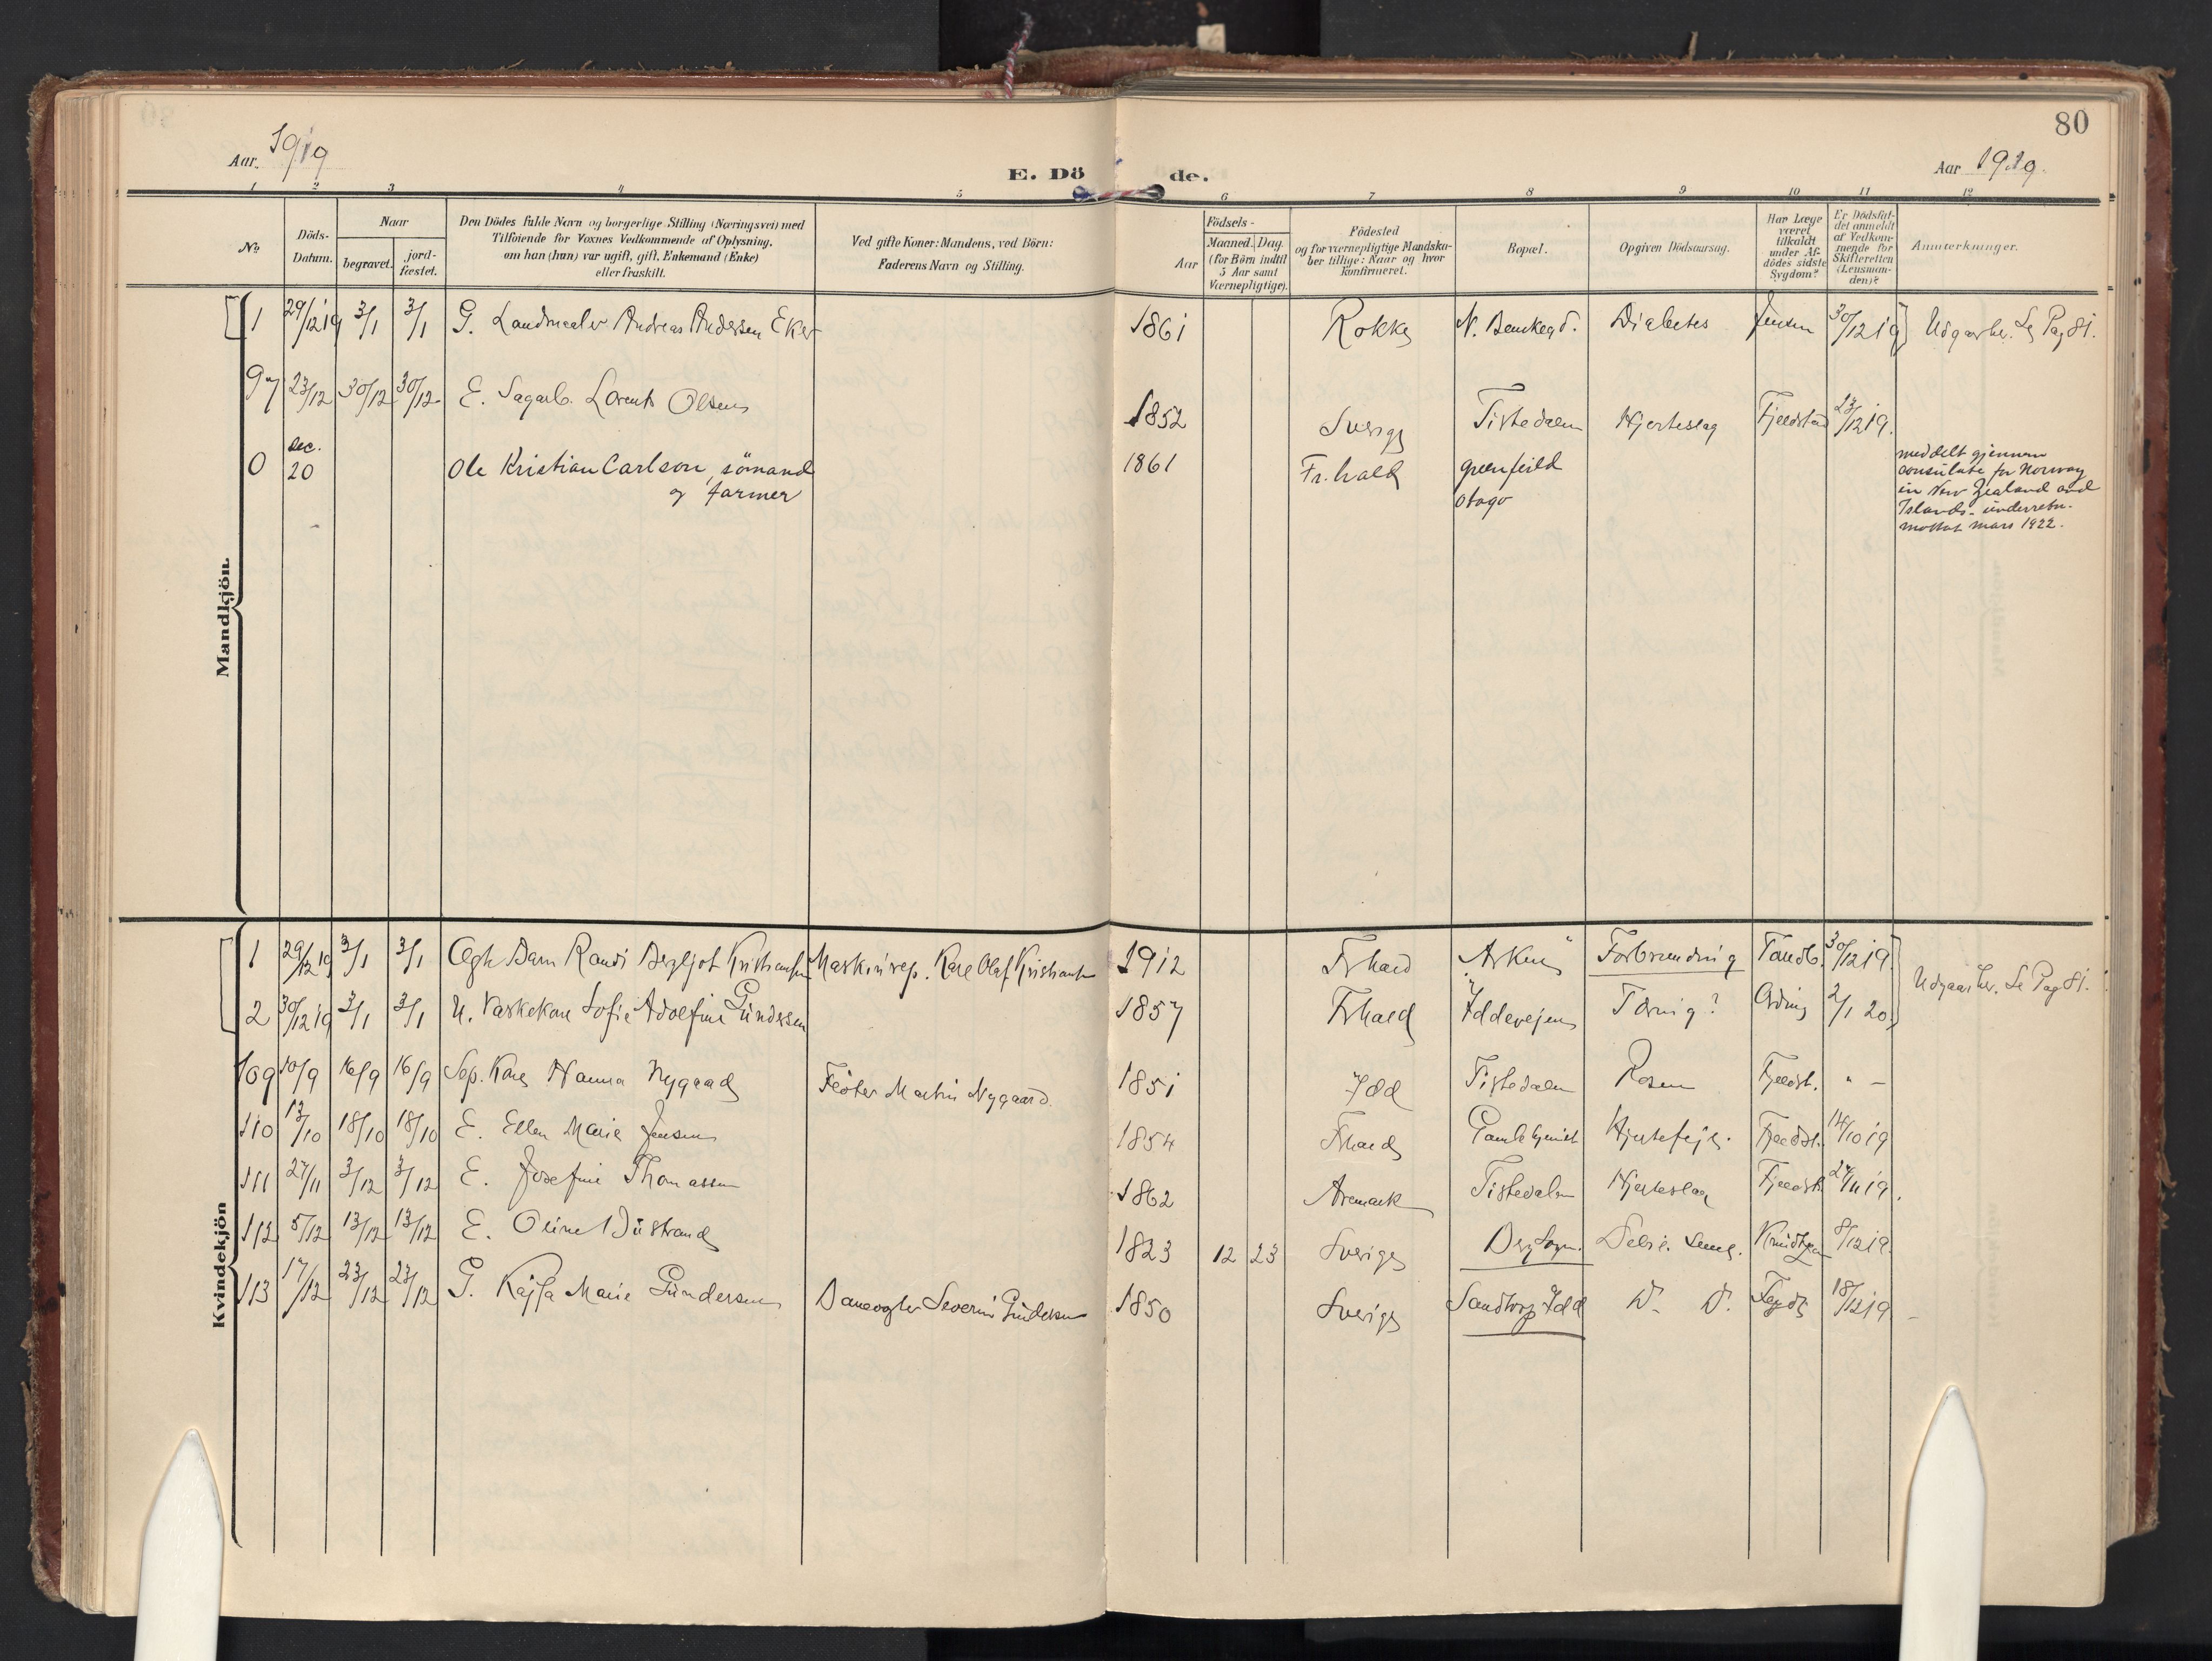 80
Aar. 1919
E. Döde.
Aar 1919.
1 2 3 4 5 6 7 8 9 10 11 12
No.
Döds-Datum.
Naar
begravet.
jord-fæstet.
Den Dödes fulde Navn og borgerlige Stilling (Næringsvei) med
Tilföiende for Voxnes Vedkommende af Oplysning,
om han (hun) var ugift, gift, Enkemand (Enke)
eller fraskilt.
Ved gifte Koner: Mandens, ved Börn:
Faderens Navn og Stilling.
Födsels-
Aar
Maaned. Dag.
(for Börn indtil
5 Aar samt
Værnepligtige).
Födested
og for værnepligtige Mandska-
ber tillige: Naar og hvor
konfirmeret.
Bopæl.
Opgiven Dödsaarsag.
Har Læge
været
tilkaldt
under Af-
dödes sidste
Sygdom?
Er Dödsfal-
det anmeldt
af Vedkom-
mende for
Skifteretten
(Lensman-
den)?
Anmerkninger.
Mandkjön.
1 29/12 19 3/1 3/1 G. Landmaaler Andreas Andersen Eker 1861 Rokke Diabetes Jensen 30/12 19 Udgaar her. Se Pag 81.
97 23/12 30/12 30/12 E. Sagarb. Lorents Olsen 1852 Sverige Tistedalen Hjerteslag Fjeldstad 23/12 19.
0 dec. 20 Ole Kristian Carlson, sömand 1861 Fr.hald greenfeild
og farmer Otago
meddelt gjennem
consulate for Norway
in New Zealand and
Islands - underretn.
mottat mars 1922.
Kvindekjön
1 29/12 19 3/1 3/1 Barn Randi Bergljot Kristiansen Maskinrep. Karl Olaf Kristiansen 1912 Frhald Forbrænding Tandb. 30/12 19. Udgaar her. Se Pag 81.
2 30/12 19 3/1 3/1 U. Vaskekone Sofie Adolfine Gundersen 1857 Frhald Iddeveien Tæring? 2/1 20
109 10/9 16/9 16/9 Sep. Kone Hanna Nygaard Flöter Martin Nygaard. 1851 Idd Tistedalen Rosen Fjeldst. " -
110 13/10 18/10 18/10 E. Ellen Marie Jensen 1854 Frhald Hjertefeil. Fjeldst. 14/10 19
111 27/11 3/12 3/12 E. Josefine Thomassen 1862 Aremark Tistedalen Hjerteslag Fjeldst. 27/11 19.
112 5/12 13/12 13/12 E. Oline 1823 12 23 Sverige Berg Sogn. Debil. senil. 8/12 19.
113 17/12 23/12 23/12 G. Kajsa Marie Gundersen Banevogter Severin Gundersen 1850 Sverige Sandtorp Idd D. D. 18/12 19.